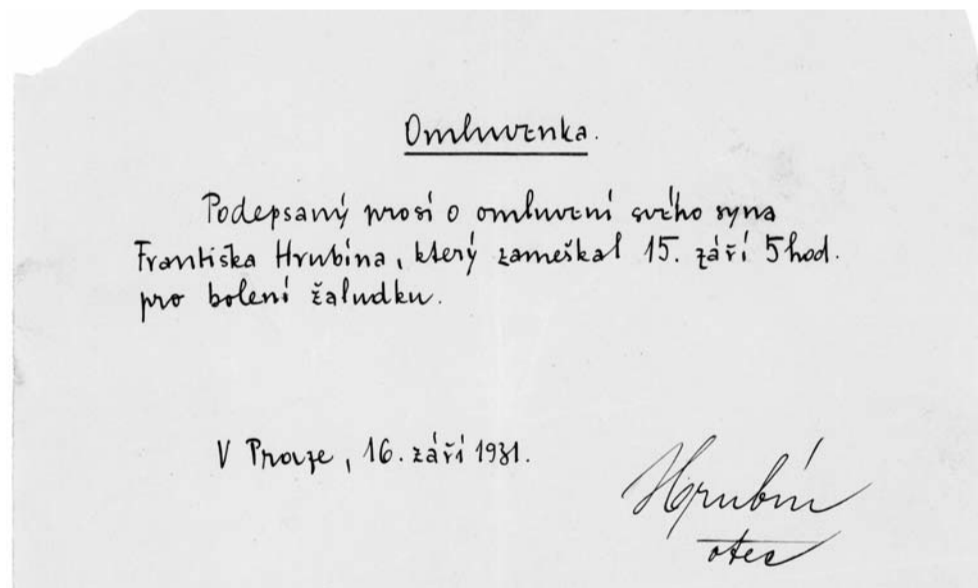 Omluvenka.
Podepsaný prosí o omluvení svého syna
Františka Hrubína, který zameškal 15. září 5 hod.
pro bolení žaludku.
V Praze, 16. září 1931.
Hrubín
otec